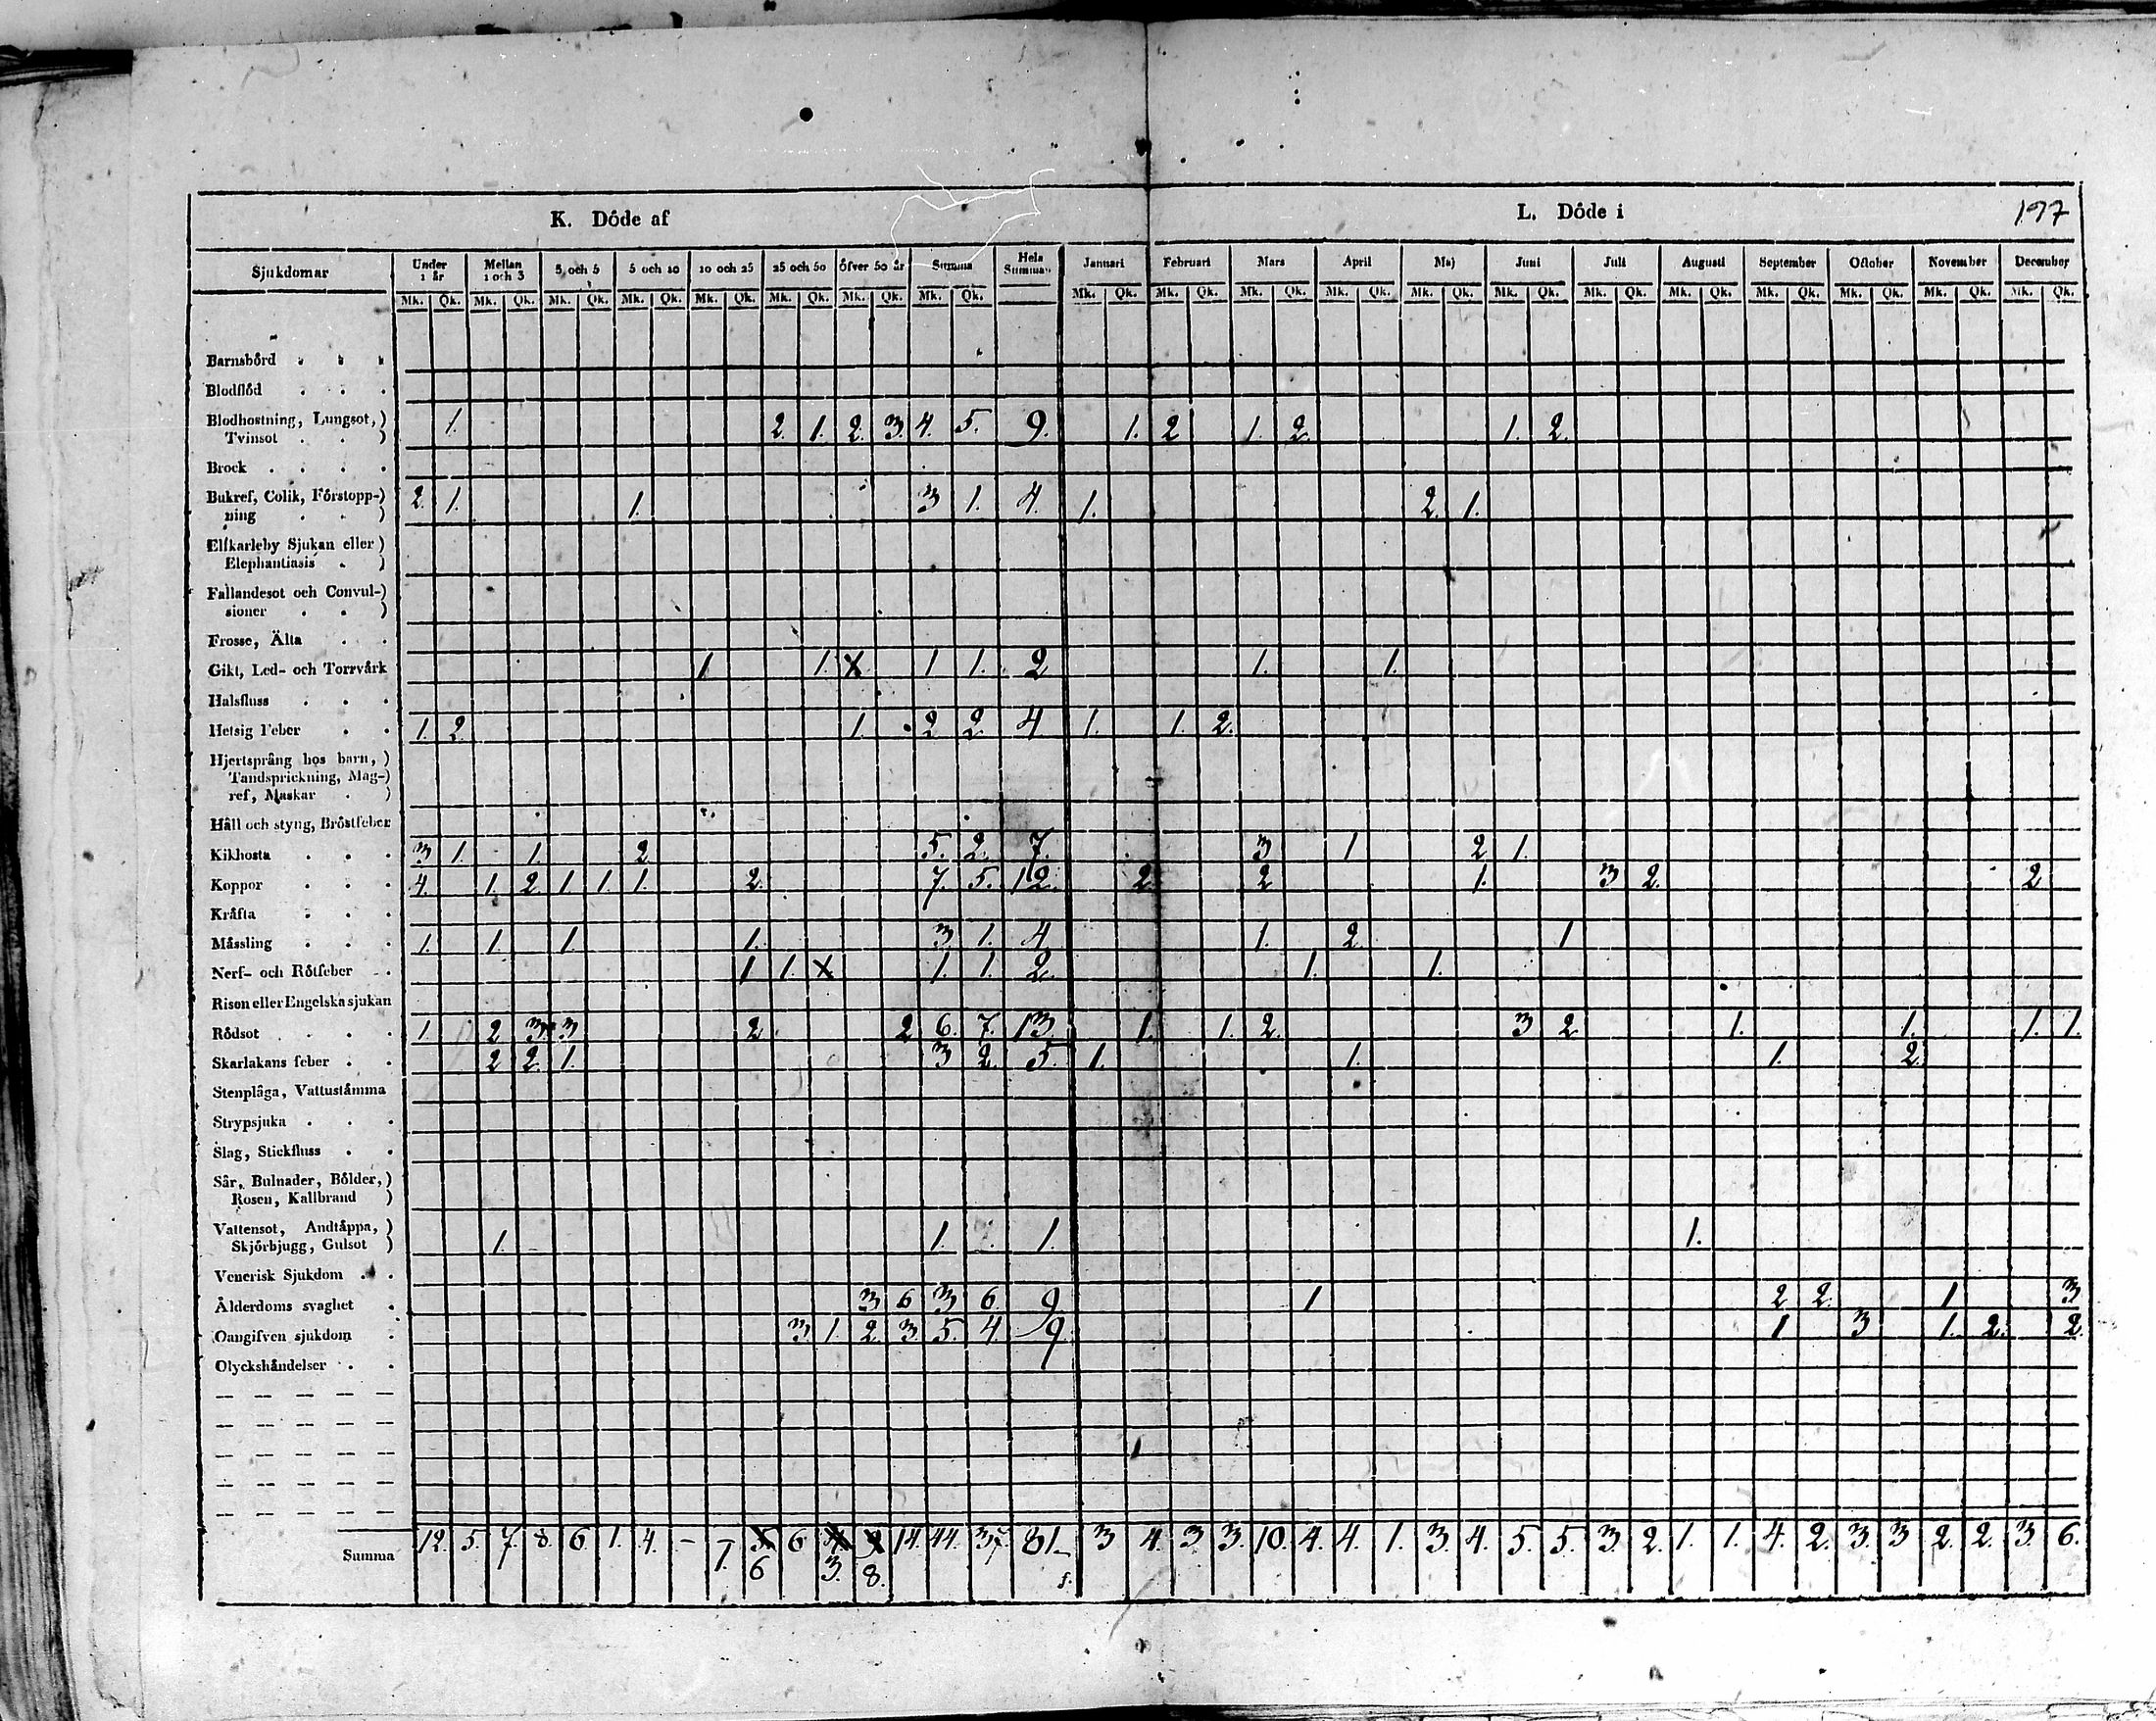 K. Dôde af L. Dôde i 197
Sjukdomar Under 1 år Mellan 1 och 3 3 och 5 5 och 10 10 och 25 25 och 50 öfver 50 år Summa Hela Summan Januari Februari Mars April Maj Juni Juli Augusti September October November December
Mk. Qk. Mk. Qk. Mk. Qk. Mk. Qk. Mk. Qk. Mk. Qk. Mk. Qk. Mk. Qk. Mk. Qk. Mk. Qk. Mk. Qk. Mk. Qk. Mk. Qk. Mk. Qk. Mk. Qk. Mk. Qk. Mk. Qk. Mk. Qk. Mk. Qk. Mk. Qk.
Barnsbörd . . .
Blodflöd . . .
Blodhostning, Lungsot,)
Tvinsot . . ) 1. 2. 1. 2. 3. 4. 5. 9. 1. 2 1. 2. 1. 2.
Brock . . . .
Bukref, Colik, Förstopp-)
ning . . ) 2. 1. 1. 3 1. 4. 1. 2. 1.
Elfkarleby Sjukan eller )
Elephantiasis . )
Fallandesot och Convul-)
sioner . . )
Frosse, Älta . .
Gikt, Led- och Torrvärk 1 1. X 1 1. 2 1. 1.
Halsfluss . . .
Hetsig Feber . . 1. 2. 1. 2 2. 4 1. 1. 2.
Hjertsprång hos barn, )
Tandsprickning, Mag-)
ref, Maskar . )
Håll och styng, Bröstfeber
Kikhosta . . . 3 1. 1. 2 5. 2. 7. 3 1 2 1.
Koppor . . . 4. 1. 2. 1 1. 1. 2. 7. 5. 12. 2. 2 1. 3 2. 2
Kräfta . . .
Måssling . . . 1. 1. 1. 1. 3 1. 4 1. 2. 1
Nerf- och Rötfeber . 1 1. X 1. 1. 2. 1. 1.
Risen eller Engelska sjukan
Rödsot . . . 1. 2 3 3 2 2 6. 7. 13. 1. 1. 2. 3 2 1. 1. 1. 1.
Skarlakans feber . . 2 2. 1. 3 2. 5. 1. 1. 1. 2.
Stenplåga, Vattustämma
Strypsjuka . . .
Slag, Stickfluss . .
Sår, Bulnader, Bölder, )
Rosen, Kallbrand )
Vattensot, Andtäppa, )
Skjörbjugg, Gulsot ) 1. 1. 1. 1.
Venerisk Sjukdom . .
Ålderdoms svaghet . 3 6 3 6. 9 1 2 2. 1 3
Oangifven sjukdom . 3. 1. 2. 3. 5. 4. 9 1 3 1. 2. 2.
Olyckshändelser . .
Summa 12. 5. 7. 8. 6. 1. 4. - 7. 6 6 3. 8. 14. 44. 37. 81. 3 4. 3 3. 10. 4. 4. 1. 3. 4. 5. 5. 3. 2. 1. 1. 4. 2. 3. 3 2. 2. 3. 6.